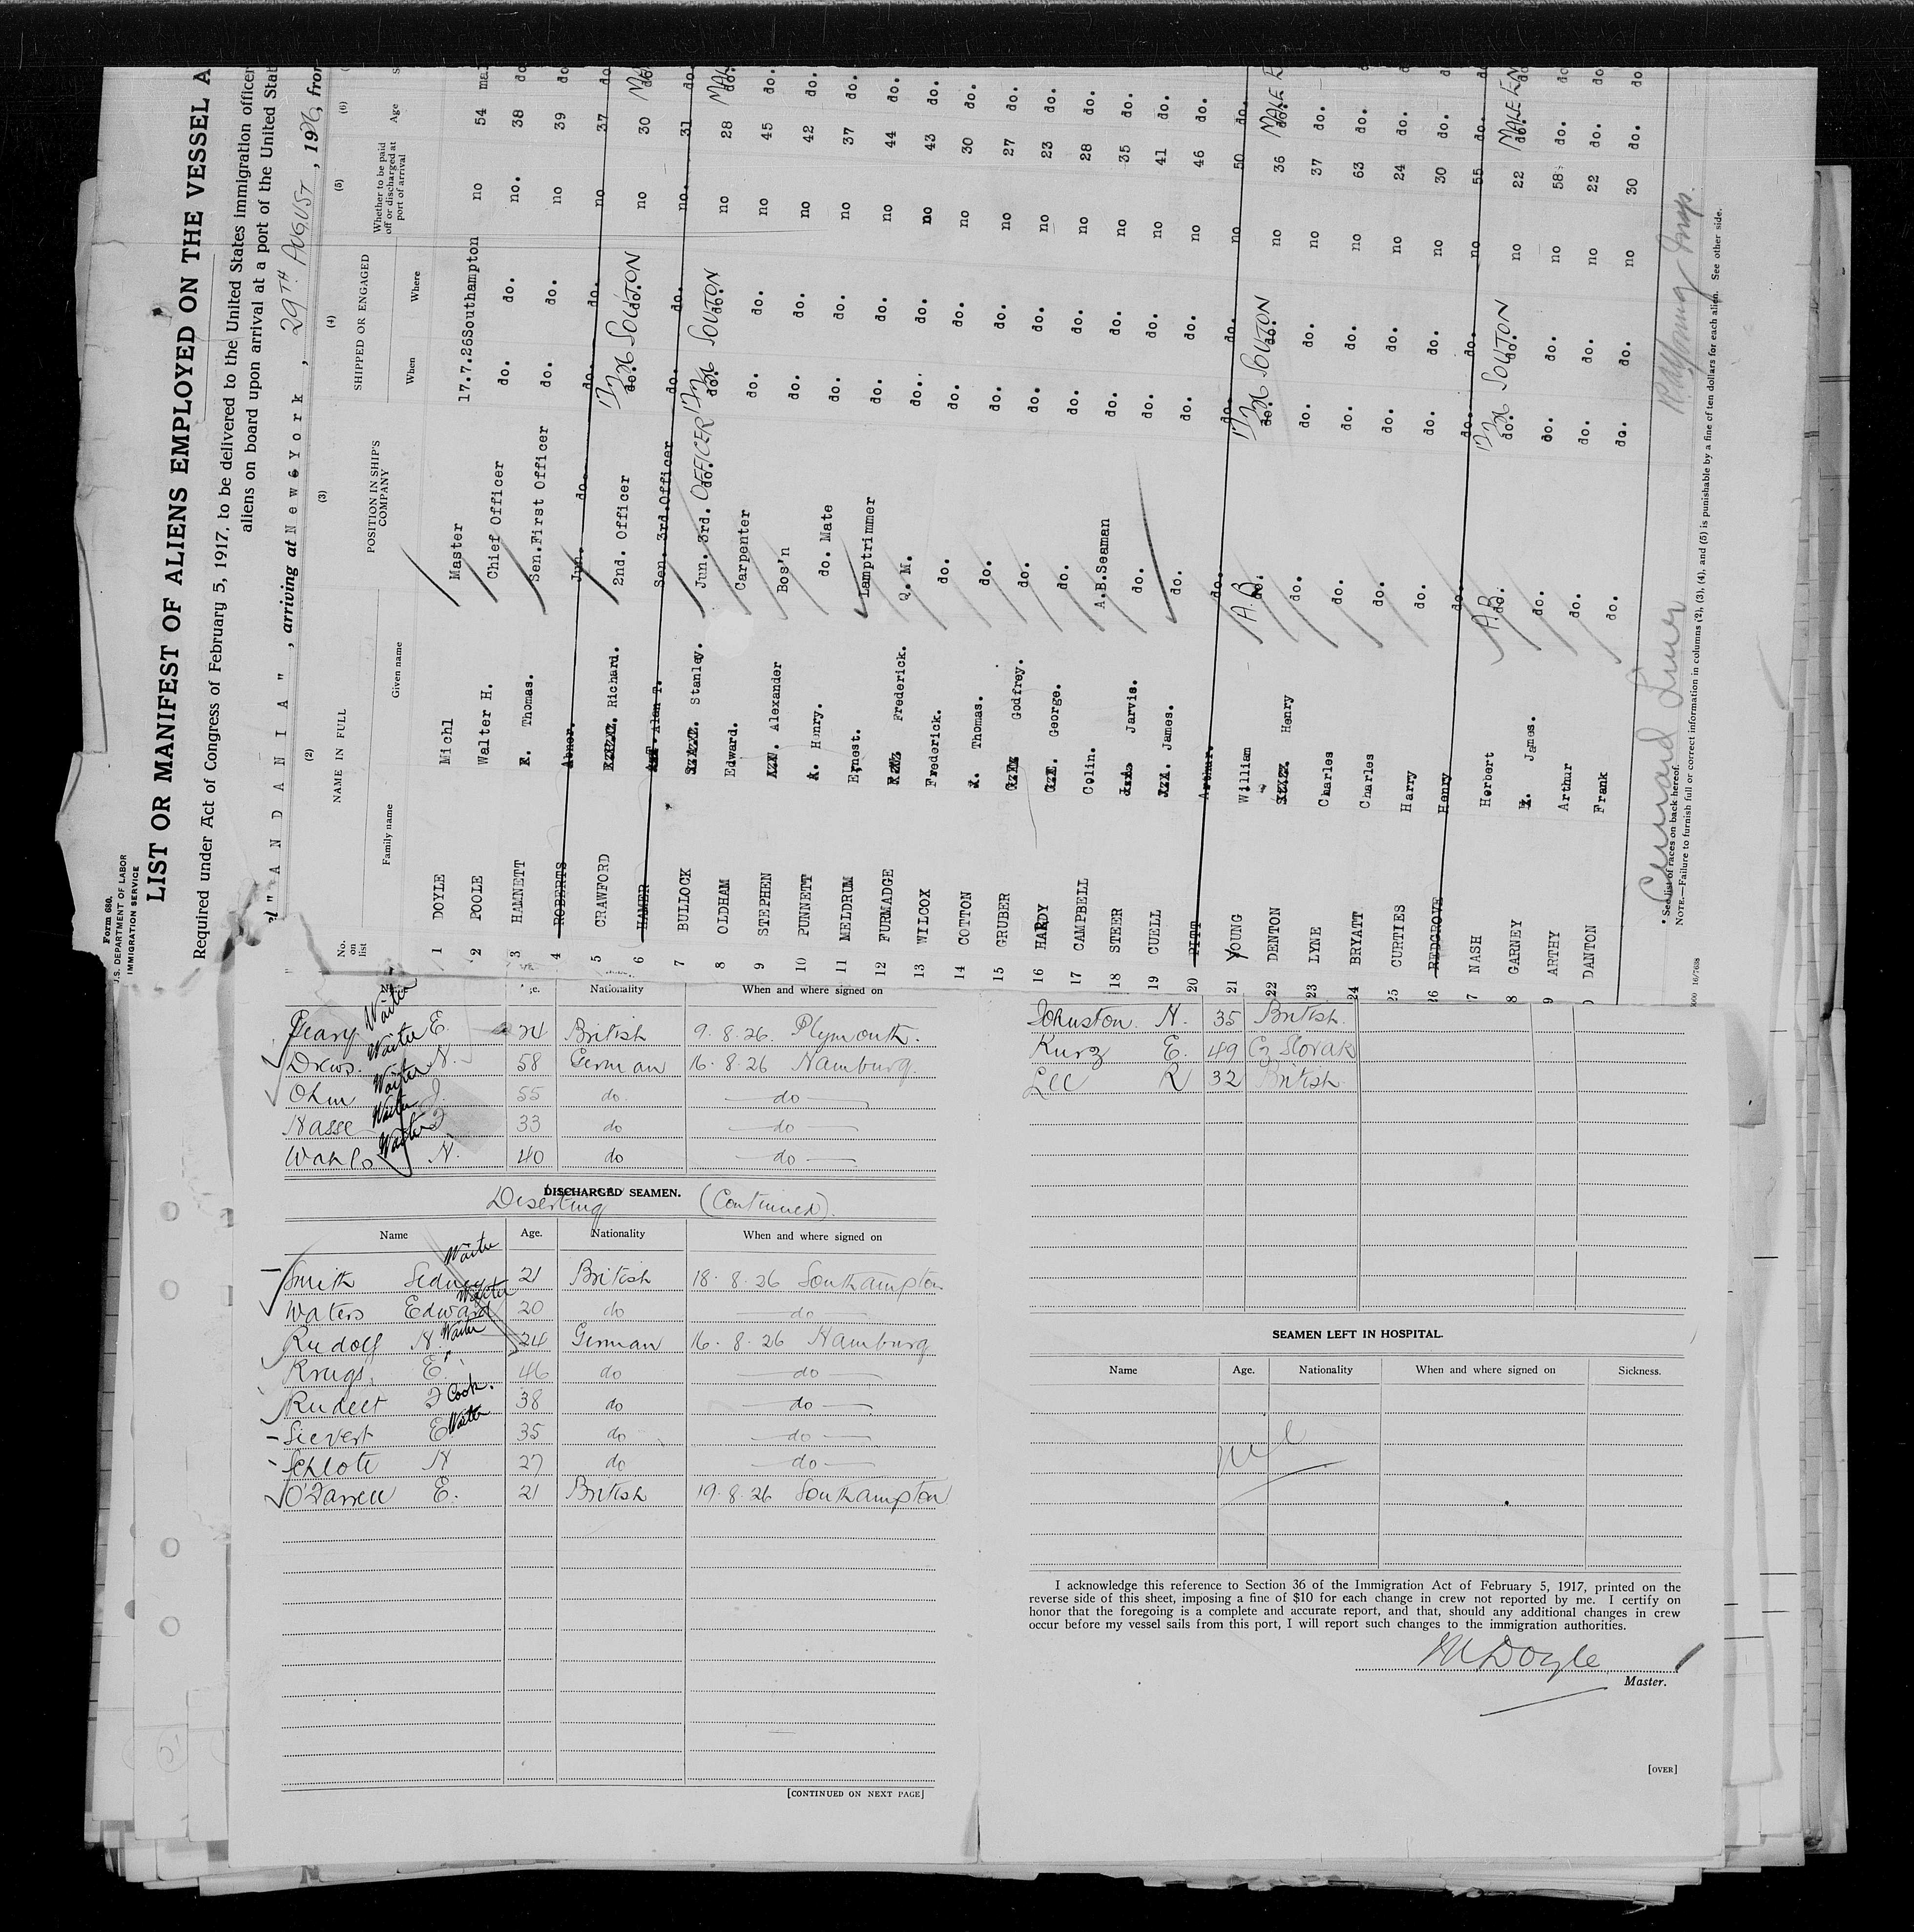 Form 680.
U.S. DEPARTMENT OF LABOR
IMMIGRATION SERVICE
LIST OR MANIFEST OF ALIENS EMPLOYED ON THE VESSEL A
Required under Act of Congress of February 5, 1917, to be delivered to the United States immigration officer
aliens on board upon arrival at a port of the United Stat
"A N D A N I A", arriving at New York, 29TH AUGUST, 1926, from
(2) (3) (4) (5) (6)
No. on list NAME IN FULL POSITION IN SHIP'S COMPANY SHIPPED OR ENGAGED Whether to be paid off or discharged at port of arrival Age
Family name Given name When Where
1 DOYLE Michl Master 17.7.26 Southampton no 54 mal
2 POOLE Walter H. Chief Officer do. do. no. 38 do
3 HAMNETT Thomas. Sen.First Officer do. do. no 39 do
4 ROBERTS Abner. Jun. do. do. do. no 37 do
5 CRAWFORD Richard. 2nd. Officer do. 17/7/26 do. SOUTON no 30 do.
6 HAMER Alan T. Sen. 3rd.Officer do. do. no. 31 do.
7 BULLOCK Stanley. Jun. 3rd. do. OFFICER do. 17/7/26 do. SOUTON no 28 do.
8 OLDHAM Edward. Carpenter do. do. no 45 do.
9 STEPHEN Alexander Bos'n do. do. no 42 do.
10 PUNNETT Henry. do. Mate do. do. no 37 do.
11 MELDRUM Ernest. Lamptrimmer do. do. no 44 do.
12 FURMADGE Frederick. Q. M. do.. do. no 43 do.
13 WILCOX Frederick. do. do. do. no 30 do.
14 COTTON Thomas. do. do. do. no 27 do.
15 GRUBER Godfrey. do. do. do. no 23 do.
16 HARDY George. do. do. do. no 28 do.
17 CAMPBELL Colin. A.B.Seaman do. do. no 35 do.
18 STEER Jarvis. do. do. do. no 41 do.
19 CUELL James. do. do. do. no 46 do.
20 PITT Arthur. do. do. do. no 50 do.
21 YOUNG William A.B do. 17/7/26 do. SOUTON do. no 36 MALE E do.
22 DENTON Henry do. do. do. no 37 do.
23 LYNE Charles do. do. do. no 63 do.
24 BRYATT Charles do. do. do. no 24 do.
25 CURTIES Harry do. do. do. no 30 do.
26 REDGROVE Henry do. do. do. no 55 do.
7 NASH Herbert A.B. do. 17/7/26 do. SOUTON do. no 22 MALE EN do.
8 GARNEY James. do. do. do. no 58 do.
9 ARTHY Arthur do. do. do. no 22 do.
DANTON Frank do. do. do. no 30 do.
Cunard Liner
* See list of races on back hereof.
NOTE.—Failure to furnish full or correct information in columns (2), (3), (4), and (5) is punishable by a fine of ten dollars for each alien. See other side.
Nationality When and where signed on
Geary E. Waiter 24 British 9.8.26. Plymouth.
Drews. H. Waiter 58 German 16.8.26 Hamburg.
Ohm J. Waiter 55 do. — do —
Hasse Waiter 33 do — do —
Wahls H. Waiter 40 do — do —
DISCHARGED SEAMEN.
Deserting (Continued).
Name Age. Nationality When and where signed on
Smith Sidney Waiter 21 British 18.8.26 Southampton
Waters Edward Waiter 20 do — do —
Rudolf H. Waiter 24 German 16.8.26 Hamburg
Krugs. E. 46 do — do —
Rudelt Cook. 38 do — do —
Sievert E Waiter 35 do — do —
Schlote H 27 do — do —
O'Farrell E. 21 British 19.8.26 Southampton
[CONTINUED ON NEXT PAGE]
Johnston. H. 35 British.
Kurz E. 49 Cz Slovak
Lee R 32 British
SEAMEN LEFT IN HOSPITAL.
Name Age. Nationality When and where signed on Sickness.
nil
I acknowledge this reference to Section 36 of the Immigration Act of February 5, 1917, printed on the
reverse side of this sheet, imposing a fine of $10 for each change in crew not reported by me. I certify on
honor that the foregoing is a complete and accurate report, and that, should any additional changes in crew
occur before my vessel sails from this port, I will report such changes to the immigration authorities.
M Doyle
Master.
[OVER]